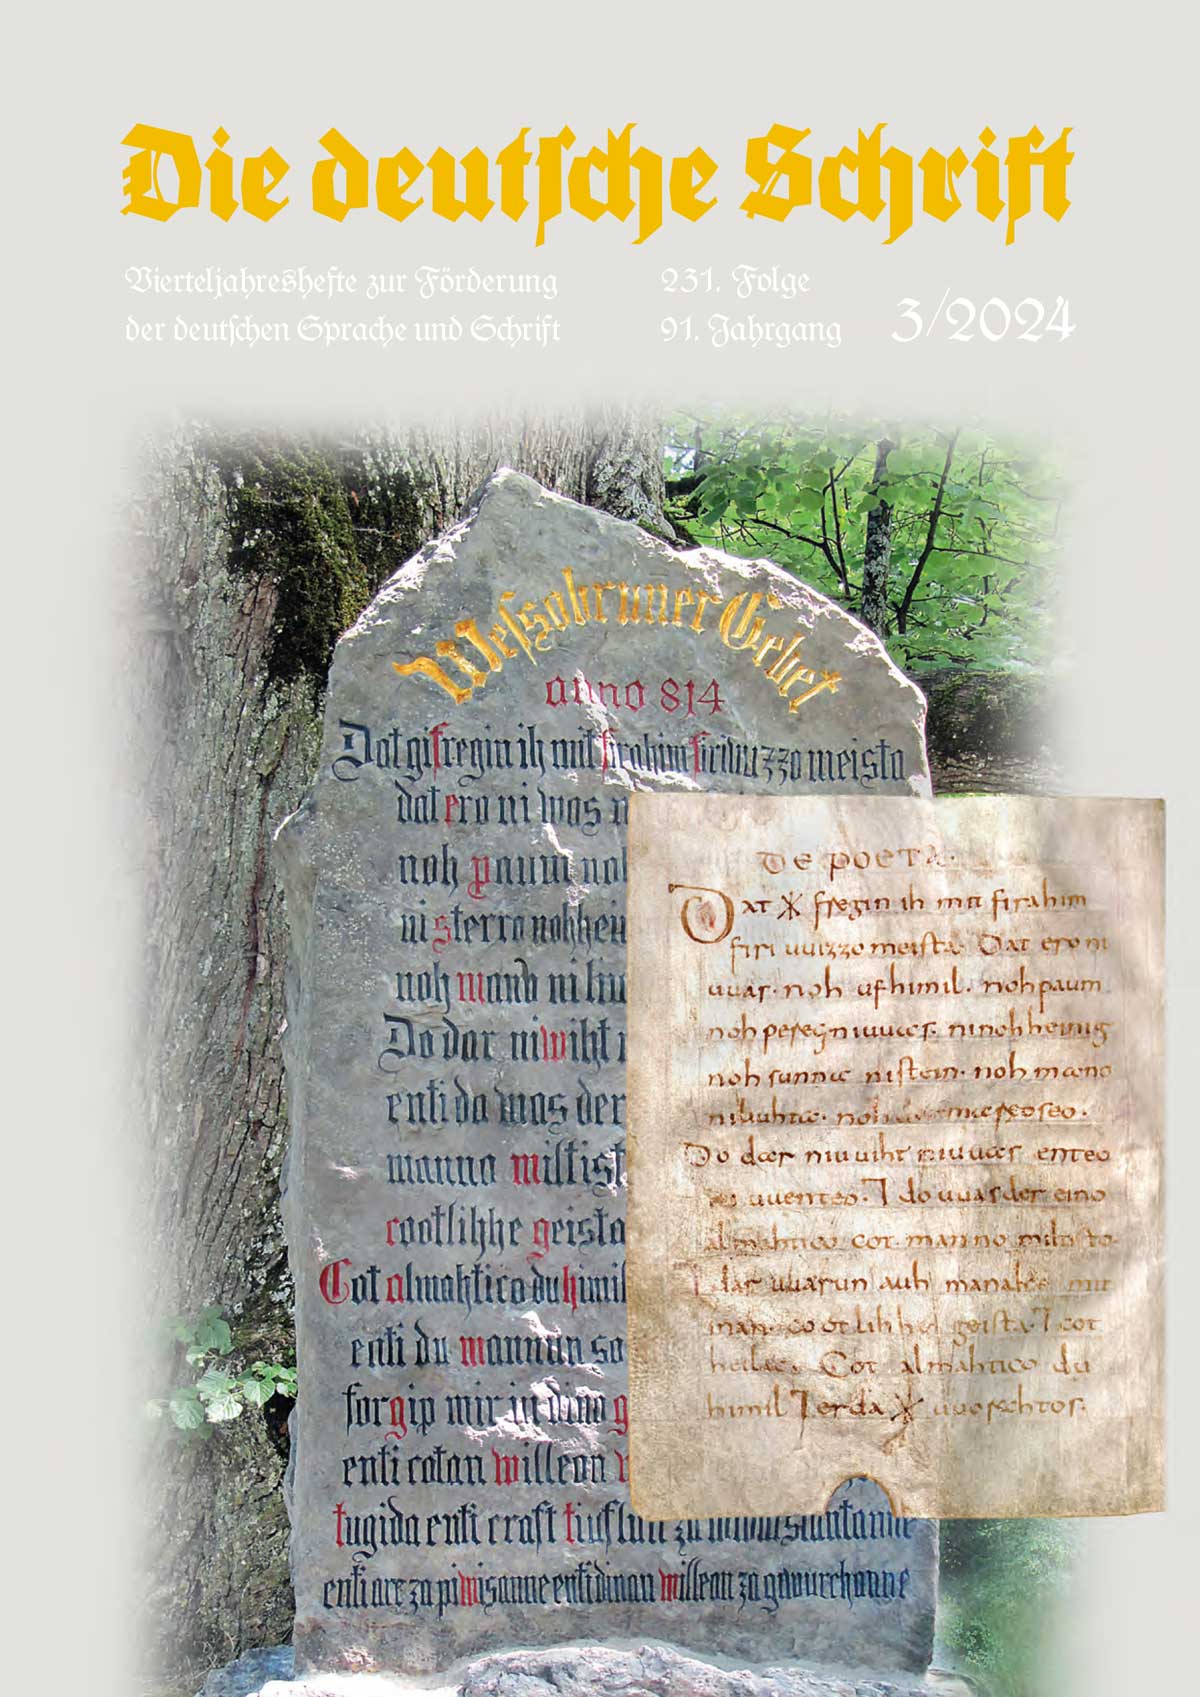 Die deutſche Schrift
Vierteljahreshefte zur Förderung
der deutſchen Sprache und Schrift
231. Folge
91. Jahrgang
3/2024
Weſſobrunner Gebet
anno 814
Dat gifregin ih mit firahim firiwizzo meista
dat ero ni was
noh paum noh
ni sterro nohhein
noh mano ni liu
Do dar niwiht
enti do was der
manno miltist
cootlihhe geista
Cot almahtico du himil
enti du mannun so
forgip mir in dino g
enti cotan willeon
tugida enti craft tiuflun za widarstantanne
enti arc za piwisanne enti dinan willeon za gawurchanne
DE POETA.
Dat * fregin ih mit firahim
firi uuizzo meiſta. Dat ero ni
uuaſ. noh ufhimil. noh paum
noh peregniuuaſ. ninohheinig
noh ſunna niſtein. noh mano
niliuhta. noh der mareoſeo.
Do dar niuuiht niuuaſ enteo
ni uuenteo. ⁊ do uuaſ der eino
almahtico cot manno milti ſto
⁊ dar uuarun auh manake mit
inan. cootlihhe geiſta. ⁊ cot
heilac. Cot almahtico du
himil ⁊ erda * uuorahtoſ.